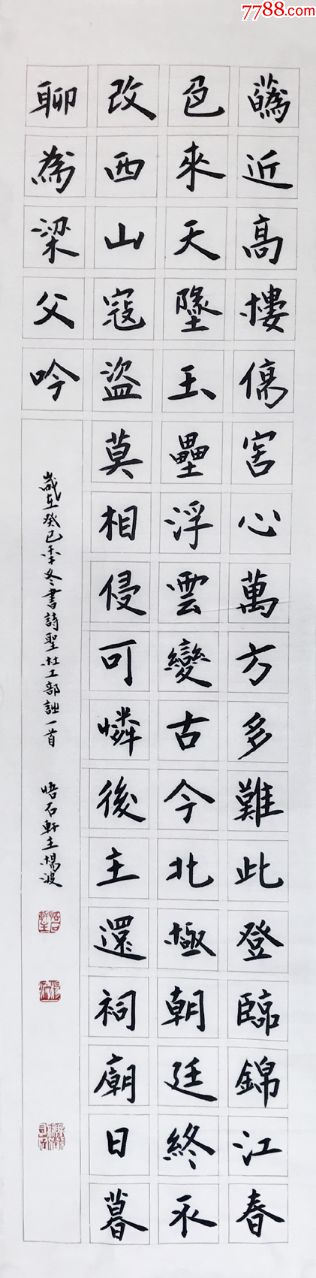 7788.com
蘤近高樓傷客心萬方多難此登臨錦江春
色來天墬玉壘浮雲變古今北極朝廷終不
改西山寇盜莫相侵可憐後主還祠廟日暮
聊為梁父吟
歲在癸巳季冬書詩聖杜工部詩一首 悟石軒主楊波